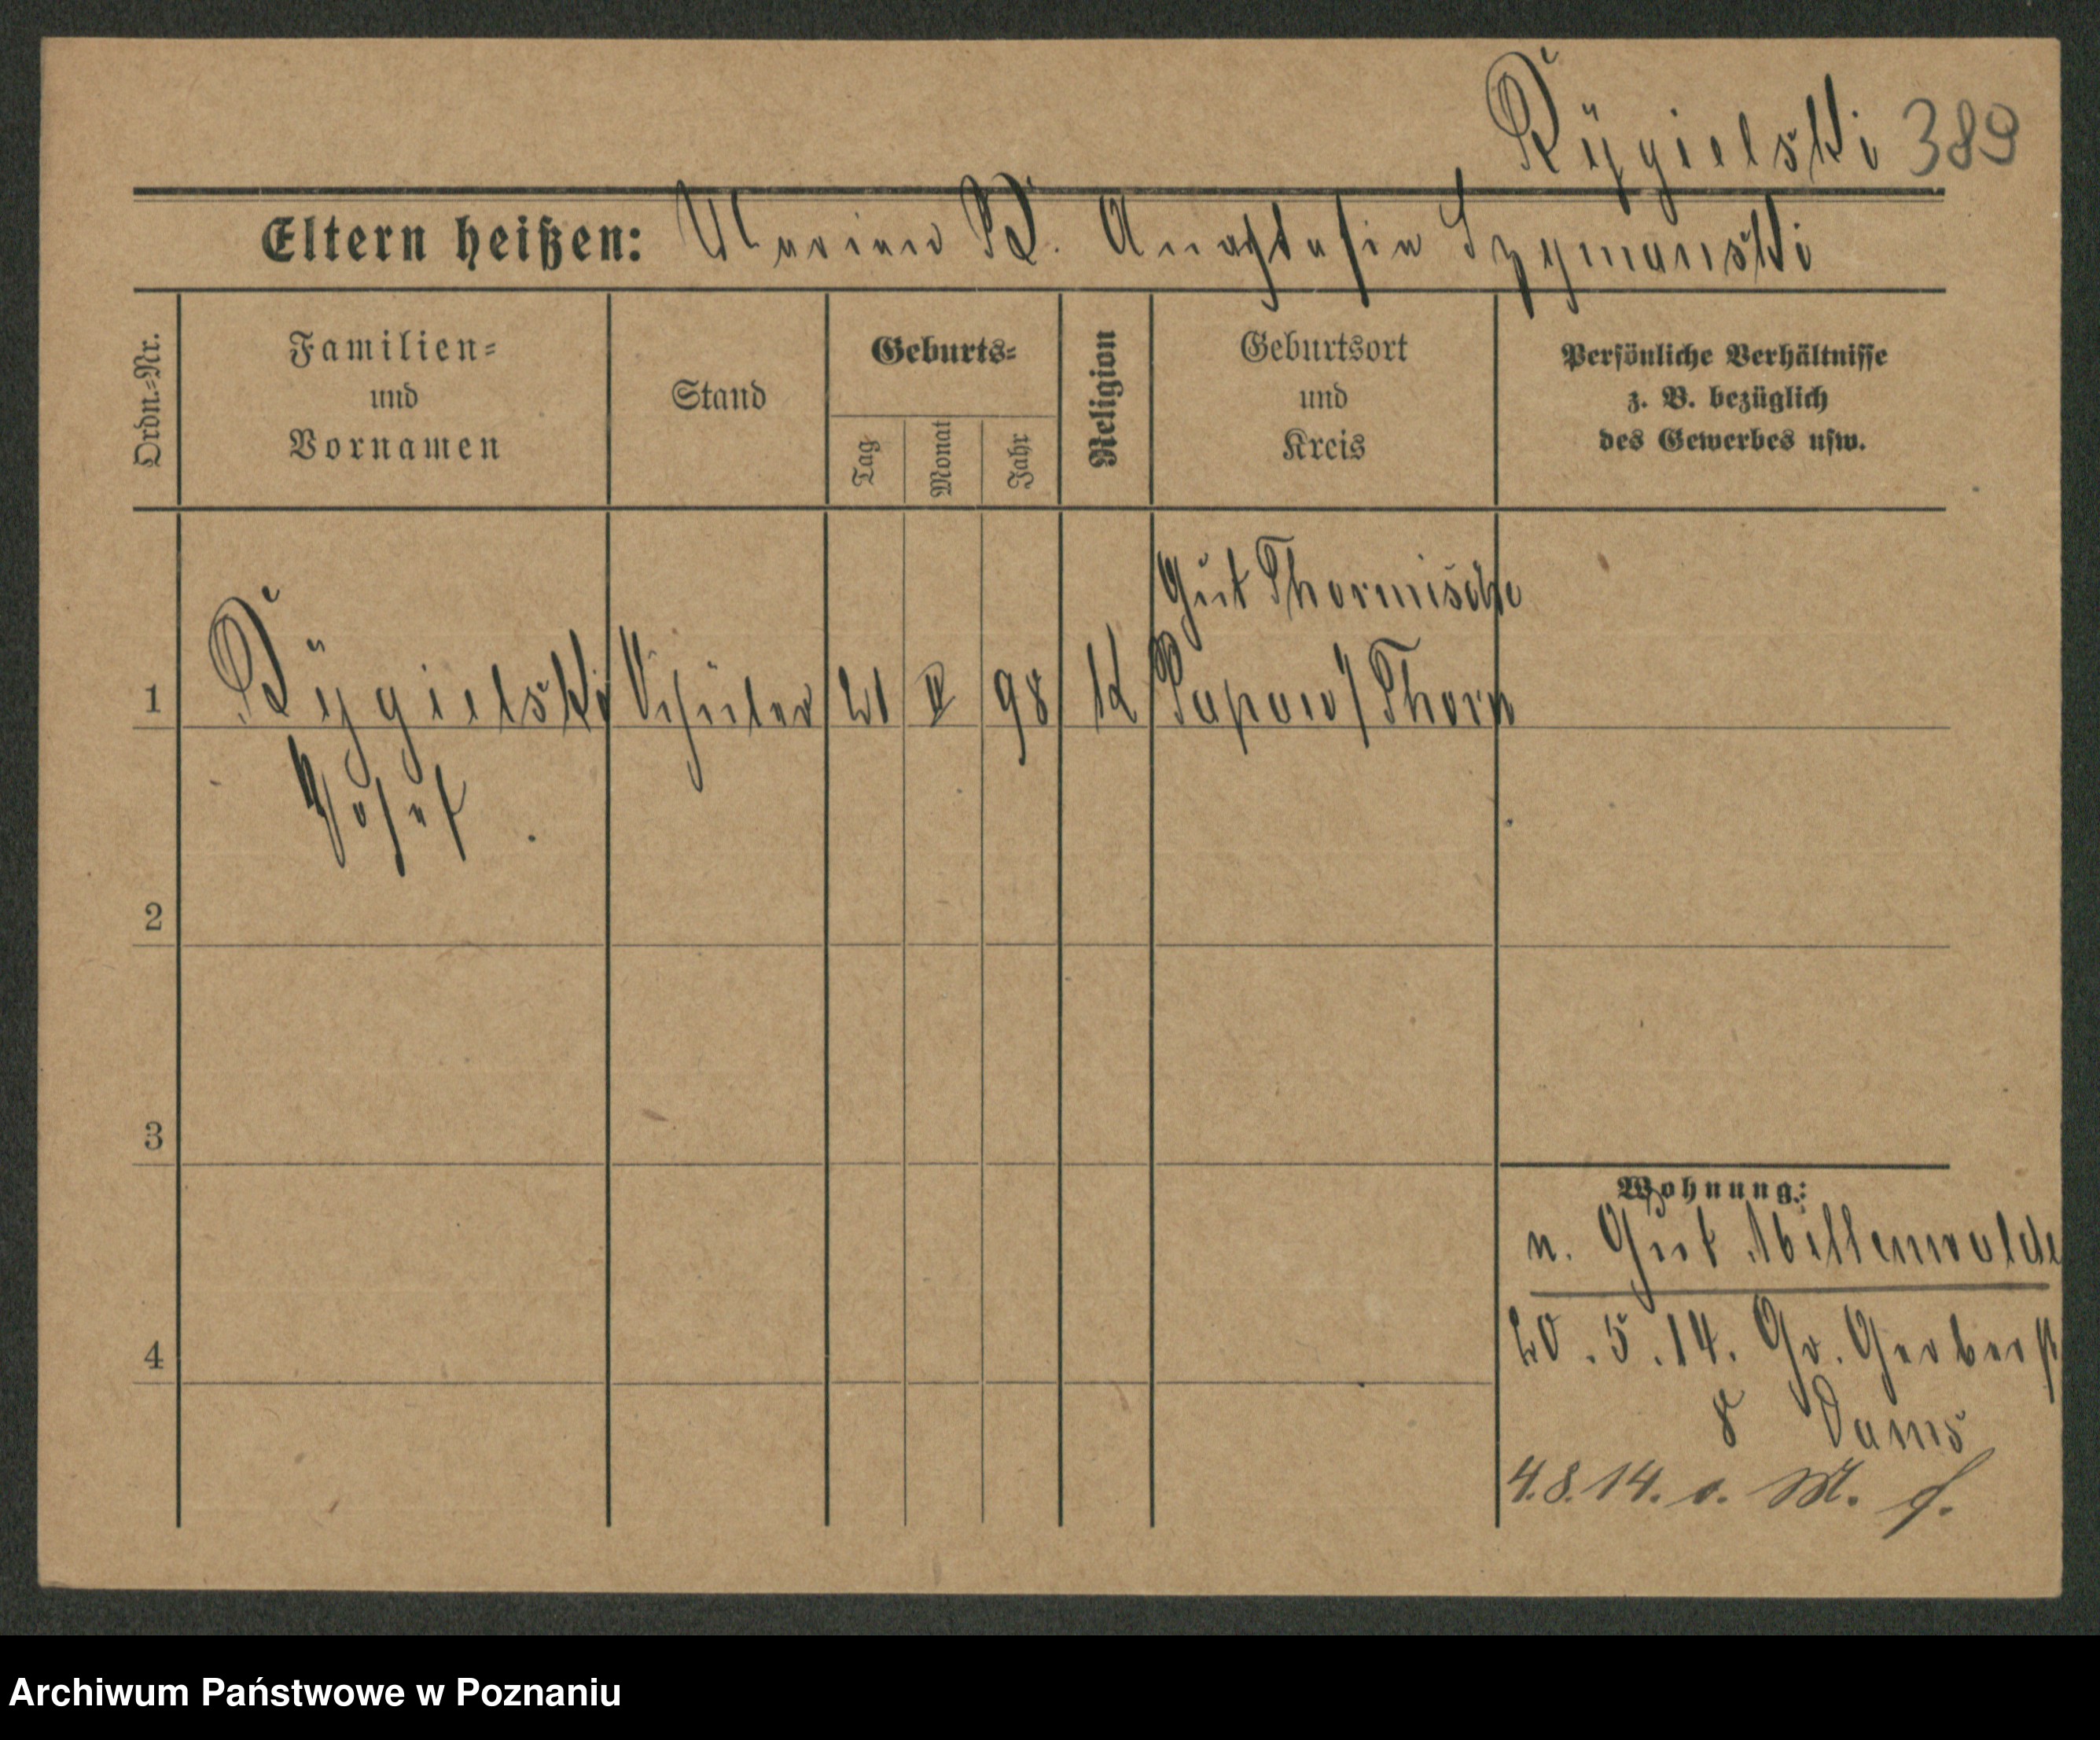 Rygielski 389
Eltern heißen: Marian R. Anastasia Szymanski
Ordn.=Nr.
Familien=
und
Vornamen
Stand
Geburts=
Tag
Monat
Jahr
Religion
Geburtsort
und
Kreis
Persönliche Verhältnisse
z. B. bezüglich
des Gewerbes usw.
Gut Thornisch
1 Rygielski Schüler 21 98 K Papow / Thorn
Josef
2
3
4
Wohnung:
n. Gut
20.5.14. Gr. Gerberst
8 Dams
4.8.14.
Archiwum Państwowe w Poznaniu